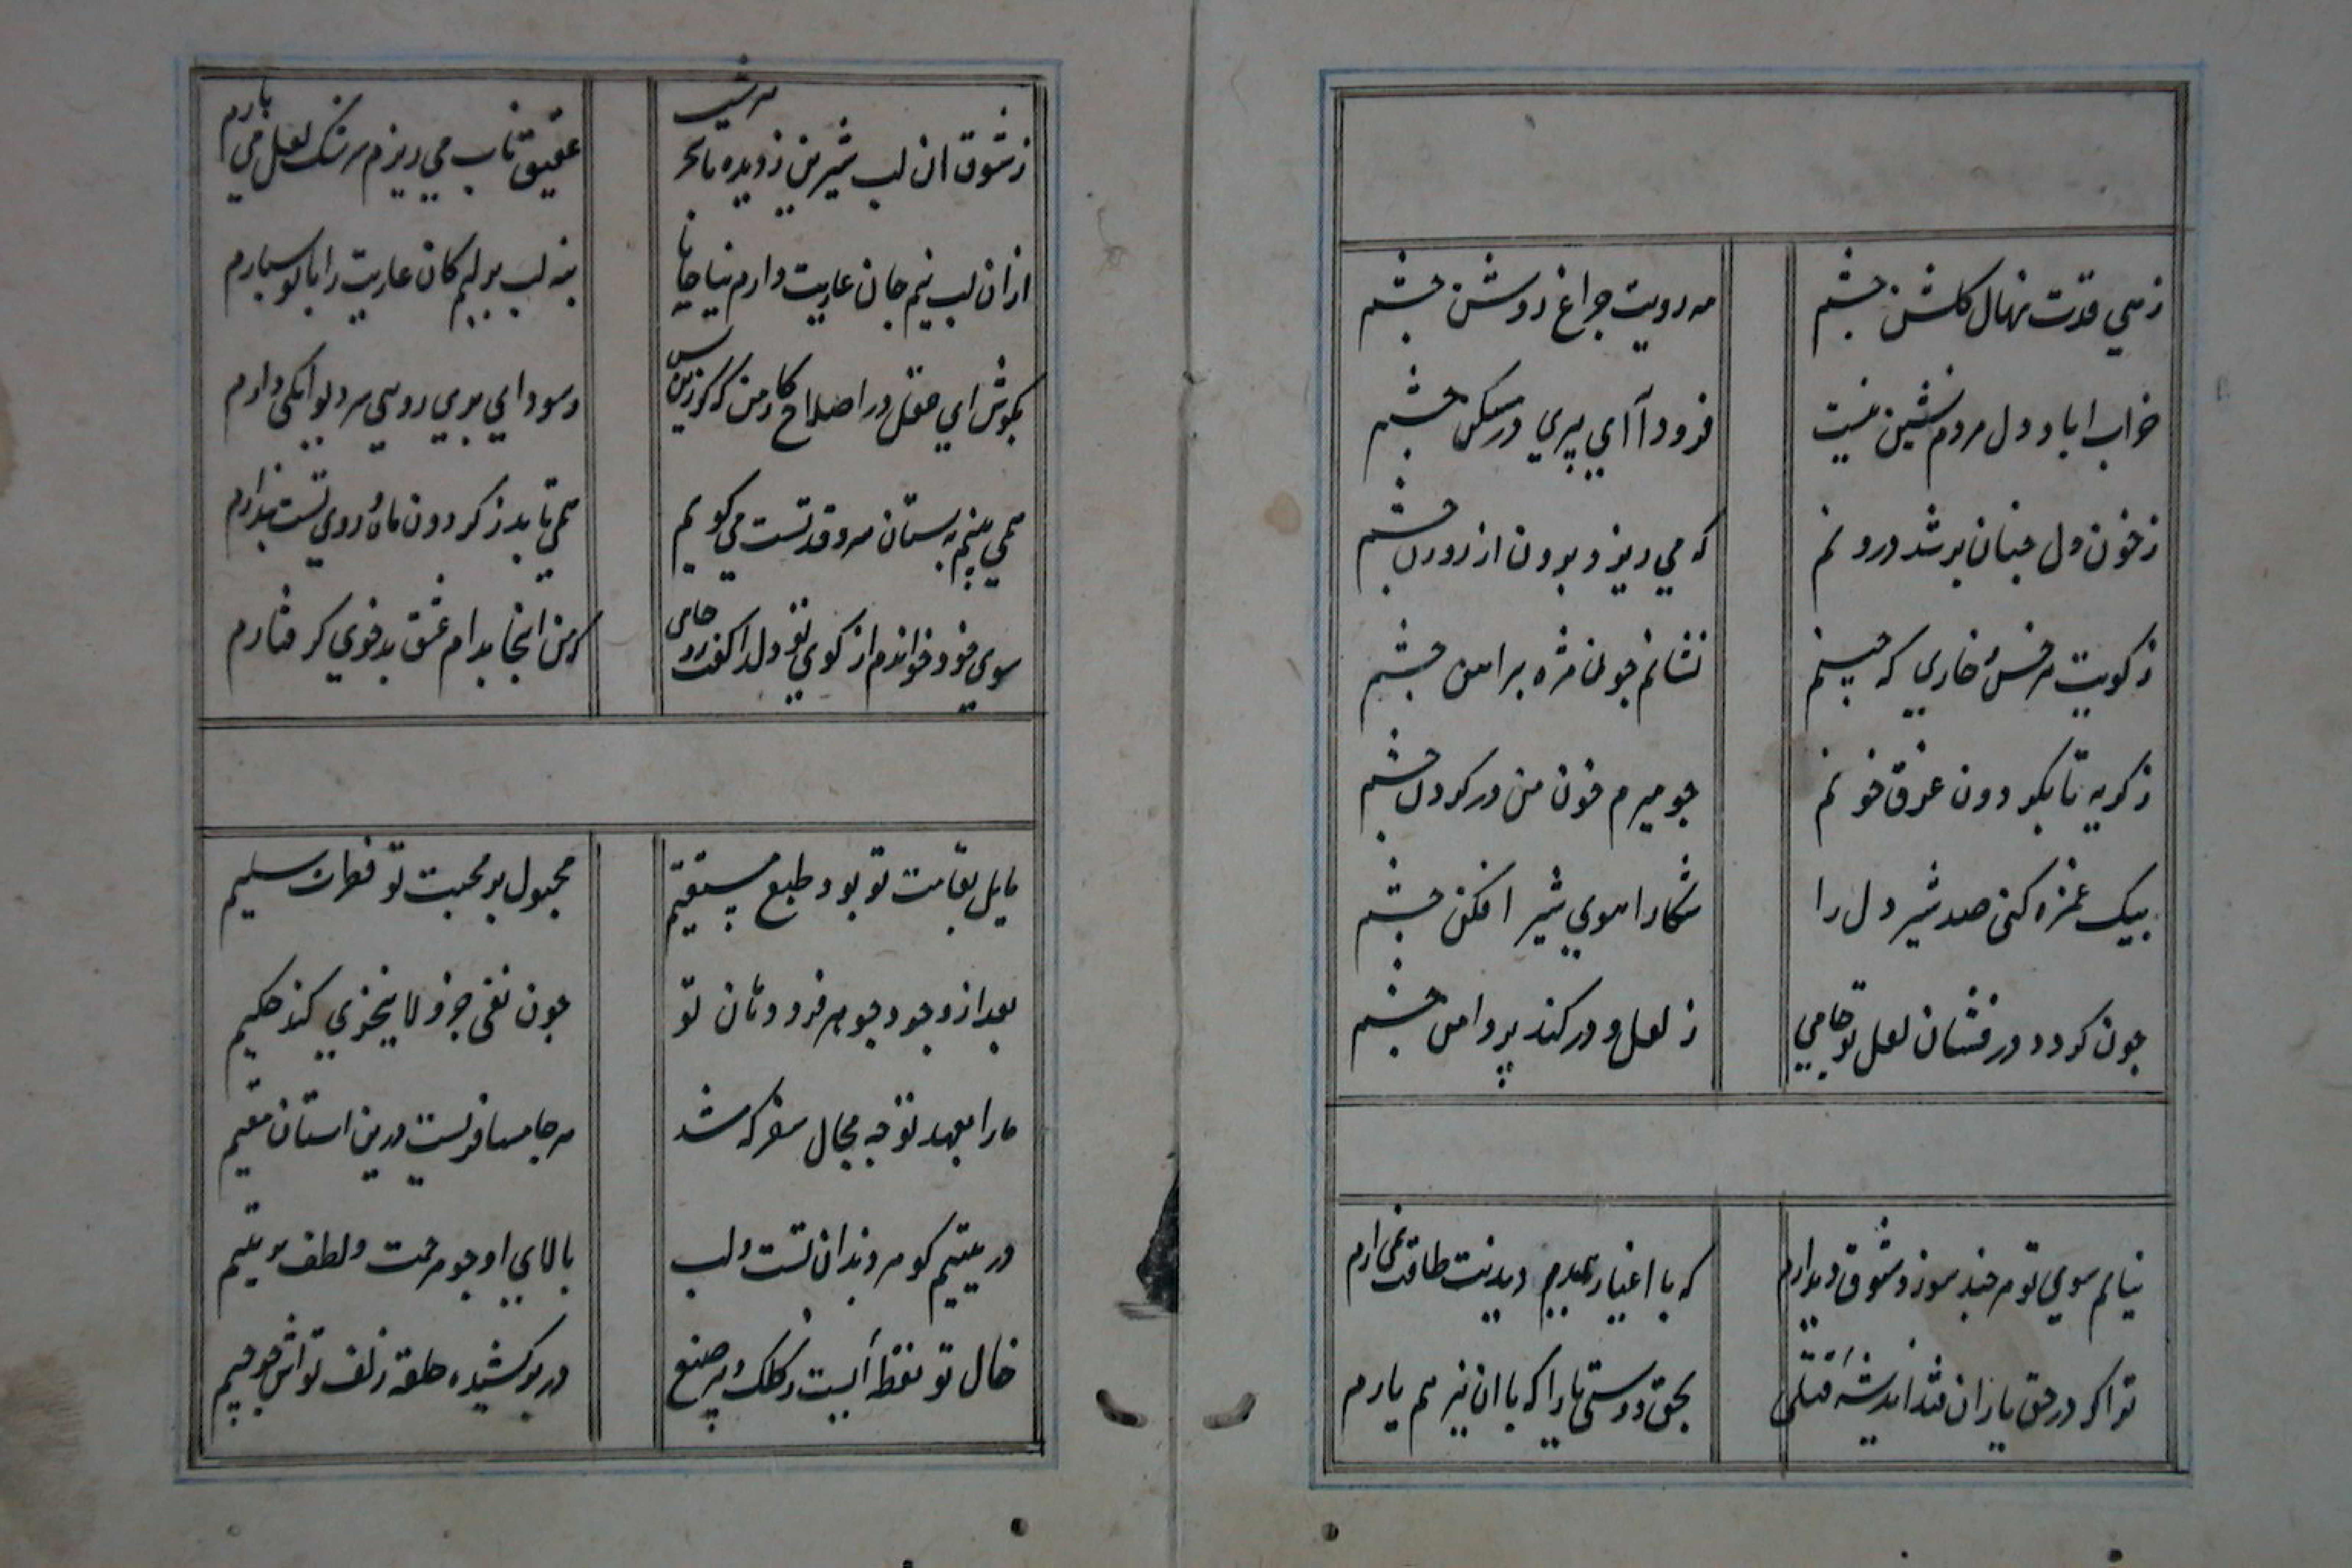 زهي قدت نهال كلشن چشم
مه رويت چراغ روشن چشم
خراب اباد دل مردم نشين نيست
فرود آ اي پري در مسكن چشم
زخون دل چنان پر شد درونم
كه مي ريزد برون از روزن چشم
زكويت هر خس و خاري كه چينم
نشانم چون مژه پيرامن چشم
زكريه تا بكردون غرق خونم
چو ميرم خون من در كردن چشم
بيك غمزه كني صد شير دل را
شكار اهوي شير افكن چشم
چون كردد در فشان لعل تو جامي
ز لعل و در كند پر دامن چشم
نيايم سوي تو هرچند سوزد شوق ديدارم
كه با اغيار همدم ديدنت طاقت نمي ارم
تو اكر در حق ياران فتد انديشه قتلي
بحق دوستي يارا كه با ان نيز هم يارم
زشوق ان لب شيرين زديده تا سحر هر شب
عقيق ناب مي ريزم سرشك لعل مي بارم
از ان لب نيم جان عاريت دارم بيا جانا
بنه لب بر لبم كان عاريت را با تو سپارم
مكوش اي عقل در اصلاح كار من كزين پس
سوداي پري رويي سر ديوانكي دارم
همي بينم به بستان سرو قد تست مي كويم
همي تابد ز كردون ماه روي تست پندارم
سوي خود خواندم از كوي تو دلدار كفت رو جامي
كه من اينجا بدام عشق بدخوي كرفتارم
مايل بقامت تو بود طبع مستقيم
مجبول بر محبت تو فطرت سليم
بعد از وجود جوهر فرد دهان تو
چون نفي جزو لا يتجزي كند حكيم
ما را بعهد تو چه مجال سفر كه شد
هر جا مسافريست درين استان مقيم
در يتيم كوهر دندان تست و لب
بالاي او چو مرحمت و لطف بر يتيم
خال تو نقطه ايست ز كلك دبير صنع
در بر كشيده حلقه زلف تواش چو جيم